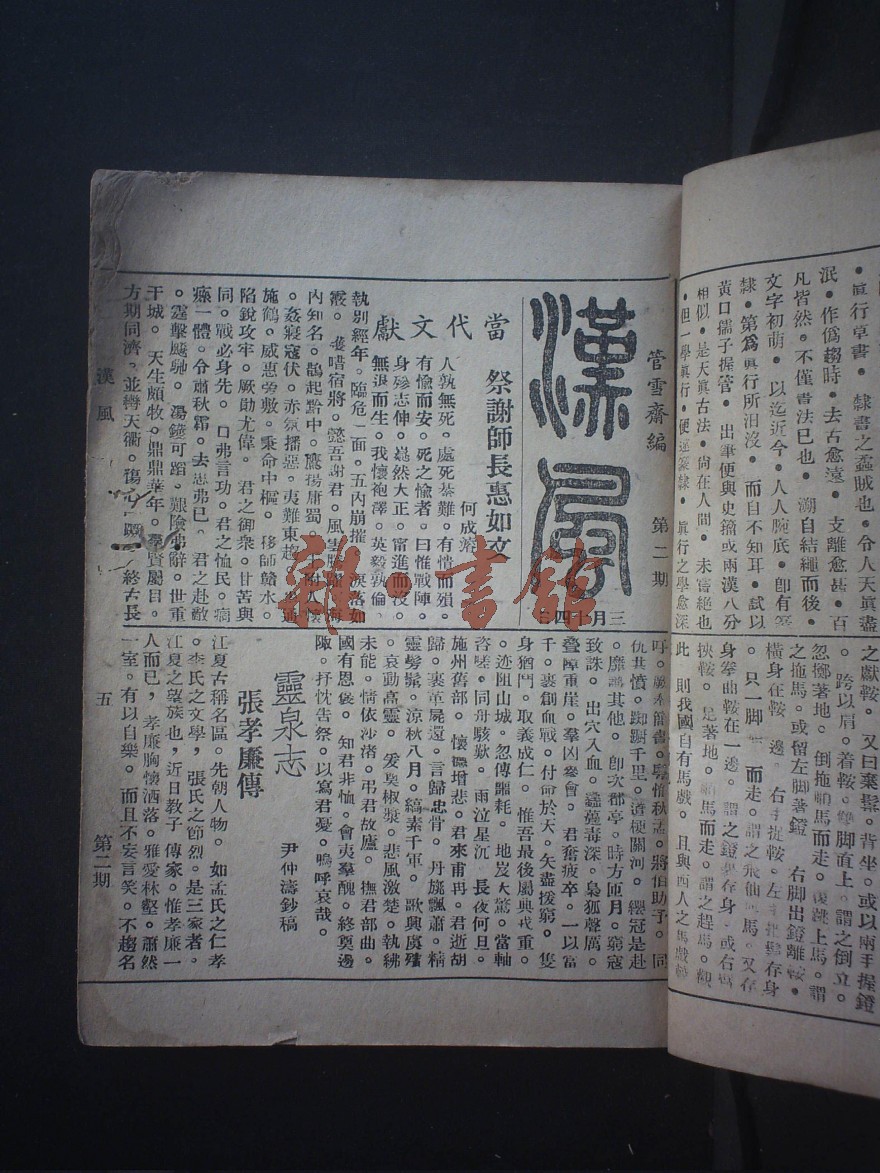 ・眞行草書・隸書之蟊賊也。令人天眞盡
泯・作僞趨時・去古愈遠・支離愈甚・百
凡皆然・不僅書法已也・溯自結繩而後・
文字初萌・以迄近今・人人腕底・卽有篆
隸・第爲眞行所汨沒・而自不知耳・試以
黃口儒子握管・出筆便與史籀或兩漢八分
相似・是天眞古法・尙在人間・未嘗絕也
・但一學眞行・便遠篆隸・眞行之學愈深
之獻鞍。又曰棄鬃。背坐。或以兩手握鐙
。跨以肩。着鞍。雙脚直上。謂之倒立。
忽擲著地。倒拖順馬而走。復跳上馬。謂
之拖馬。或留左脚著鐙。右脚出鐙離鞍。
橫身在鞍
。只一脚
此。則我國自有馬戲。且與西人之馬戲
管雪齋編
第二期
漢風
三月十四日
當代文獻
祭謝師長惠如文
何成濬
人孰無死。處死綦難。有惜而殞。
有愉而安。死之愉者。曰惟戰陣。
身殄志伸。嶷然大正。甯進而沒。
無退而生。我懷袍澤。英毅孰倫。
執別經年。臨危一面。五內崩摧。淚落如
霰。
內知名。鵲起黔中。鷹揚庸蜀。
。姦宼寇伏。赤氛播惡。夷難東趨。
施鶴。威惠旁敷。秉命中樞。移師贛水。
陷銳攻牢。厥勛尤偉。君之御衆。廿苦與
同。戰必身先。口弗言功。君之恤民。痌
瘝一體。令肅秋霜。去思弗已。君之赴敵
。霆擊飈馳。湯鑊可蹈。艱險弗辭。世重
干城。天生頗牧。鼎鼎華年。羣賁屬目。
方期同濟。並轡天衢。
仇其憤。踟蹰千里。道梗關河。纓冠是赴
。靡遇其他。卽次郡亭。時方匝月。窮寇
致誅。出穴入血。蠭蠆毒深。梟狐聲厲。
疊障重崖。羣凶參會。君奮疲卒。一以當
千。裹創血戰。付命於天。矢盡援窮。隻
身猶鬥。取義成仁。惟吾最後。屬典戎重。
。迹阻山城。忽傳噩耗。地岌天驚。當軸
咨嗟。同舟駭歎。雨泣星沉。長夜何旦。
施州舊部。懷疇增悲。君來甫再。君逝胡
歸。裹革屍還。言歸忠骨。丹旐飄蕭。精
靈髣髴。涼秋八月。縞素千軍。歌興虞殯
。哀動高靈。爰奠椒漿。悲風激楚。執紼
未能。情依沙渚。弔君故廬。撫君部曲。
國有恩褒。知君非恤。會夷羣醜。終奠邊
陬。抒忱告祭。以寫君憂。嗚呼哀哉。
靈泉志
尹仲濤鈔稿
張孝廉傳
江夏古稱名區。先朝人物。如孟氏之仁孝
。李氏之文學，張氏之節烈。是三家者。
江夏之望族也，近日敎子傳家。惟孝廉一
人而已，孝廉胸懷洒落。雅愛林壑。蕭然
一室。有以自樂。而且不妄言笑。不趨名
漢風
五
第二期
雜書館